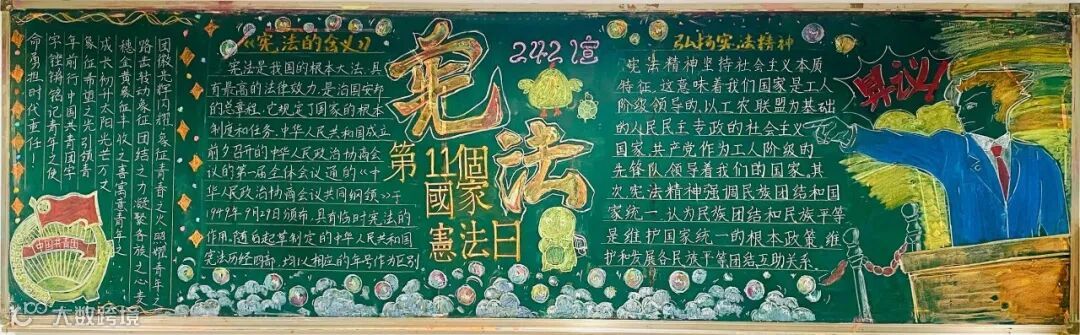 团徽光辉闪耀象征青春之火照耀青年之
路齿轮转动象征团结之力凝聚各族之心麦
穗金黄象征丰收之喜寓意青年之
成长初升太阳光芒万丈
象征希望之光引领青
年前行中国共青团字
字铿锵铭记青年之使
命勇担时代重任！
中国共青团
《宪法的含义》
宪法是我国的根本大法,具
有最高的法律效力,是治国安邦
的总章程,它规定了国家的根本
制度和任务,中华人民共和国成立
前夕召开的中华人民政治协商会
议的第一届全体会议通的《中
华人民政治协商会议共同纲领》于
1949年9月29日颁布,具有临时宪法的
作用,随自起草制定的中华人民共和国
宪法历经四部,均以相应的年号作为区别
宪法
第11個
國家
憲法日
2421宣
弘扬宪法精神
宪法精神坚持社会主义本质
特征,这意味着我们国家是工人
阶级领导的,以工农联盟为基础
的人民民主专政的社会主义
国家,共产党作为工人阶级的
先锋队,领导着我们的国家,其
次宪法精神强调民族团结和国
家统一,认为民族团结和民族平等
是维护国家统一的根本政策,维
护和发展各民族平等团结互助关系.
异议!
大数跨境